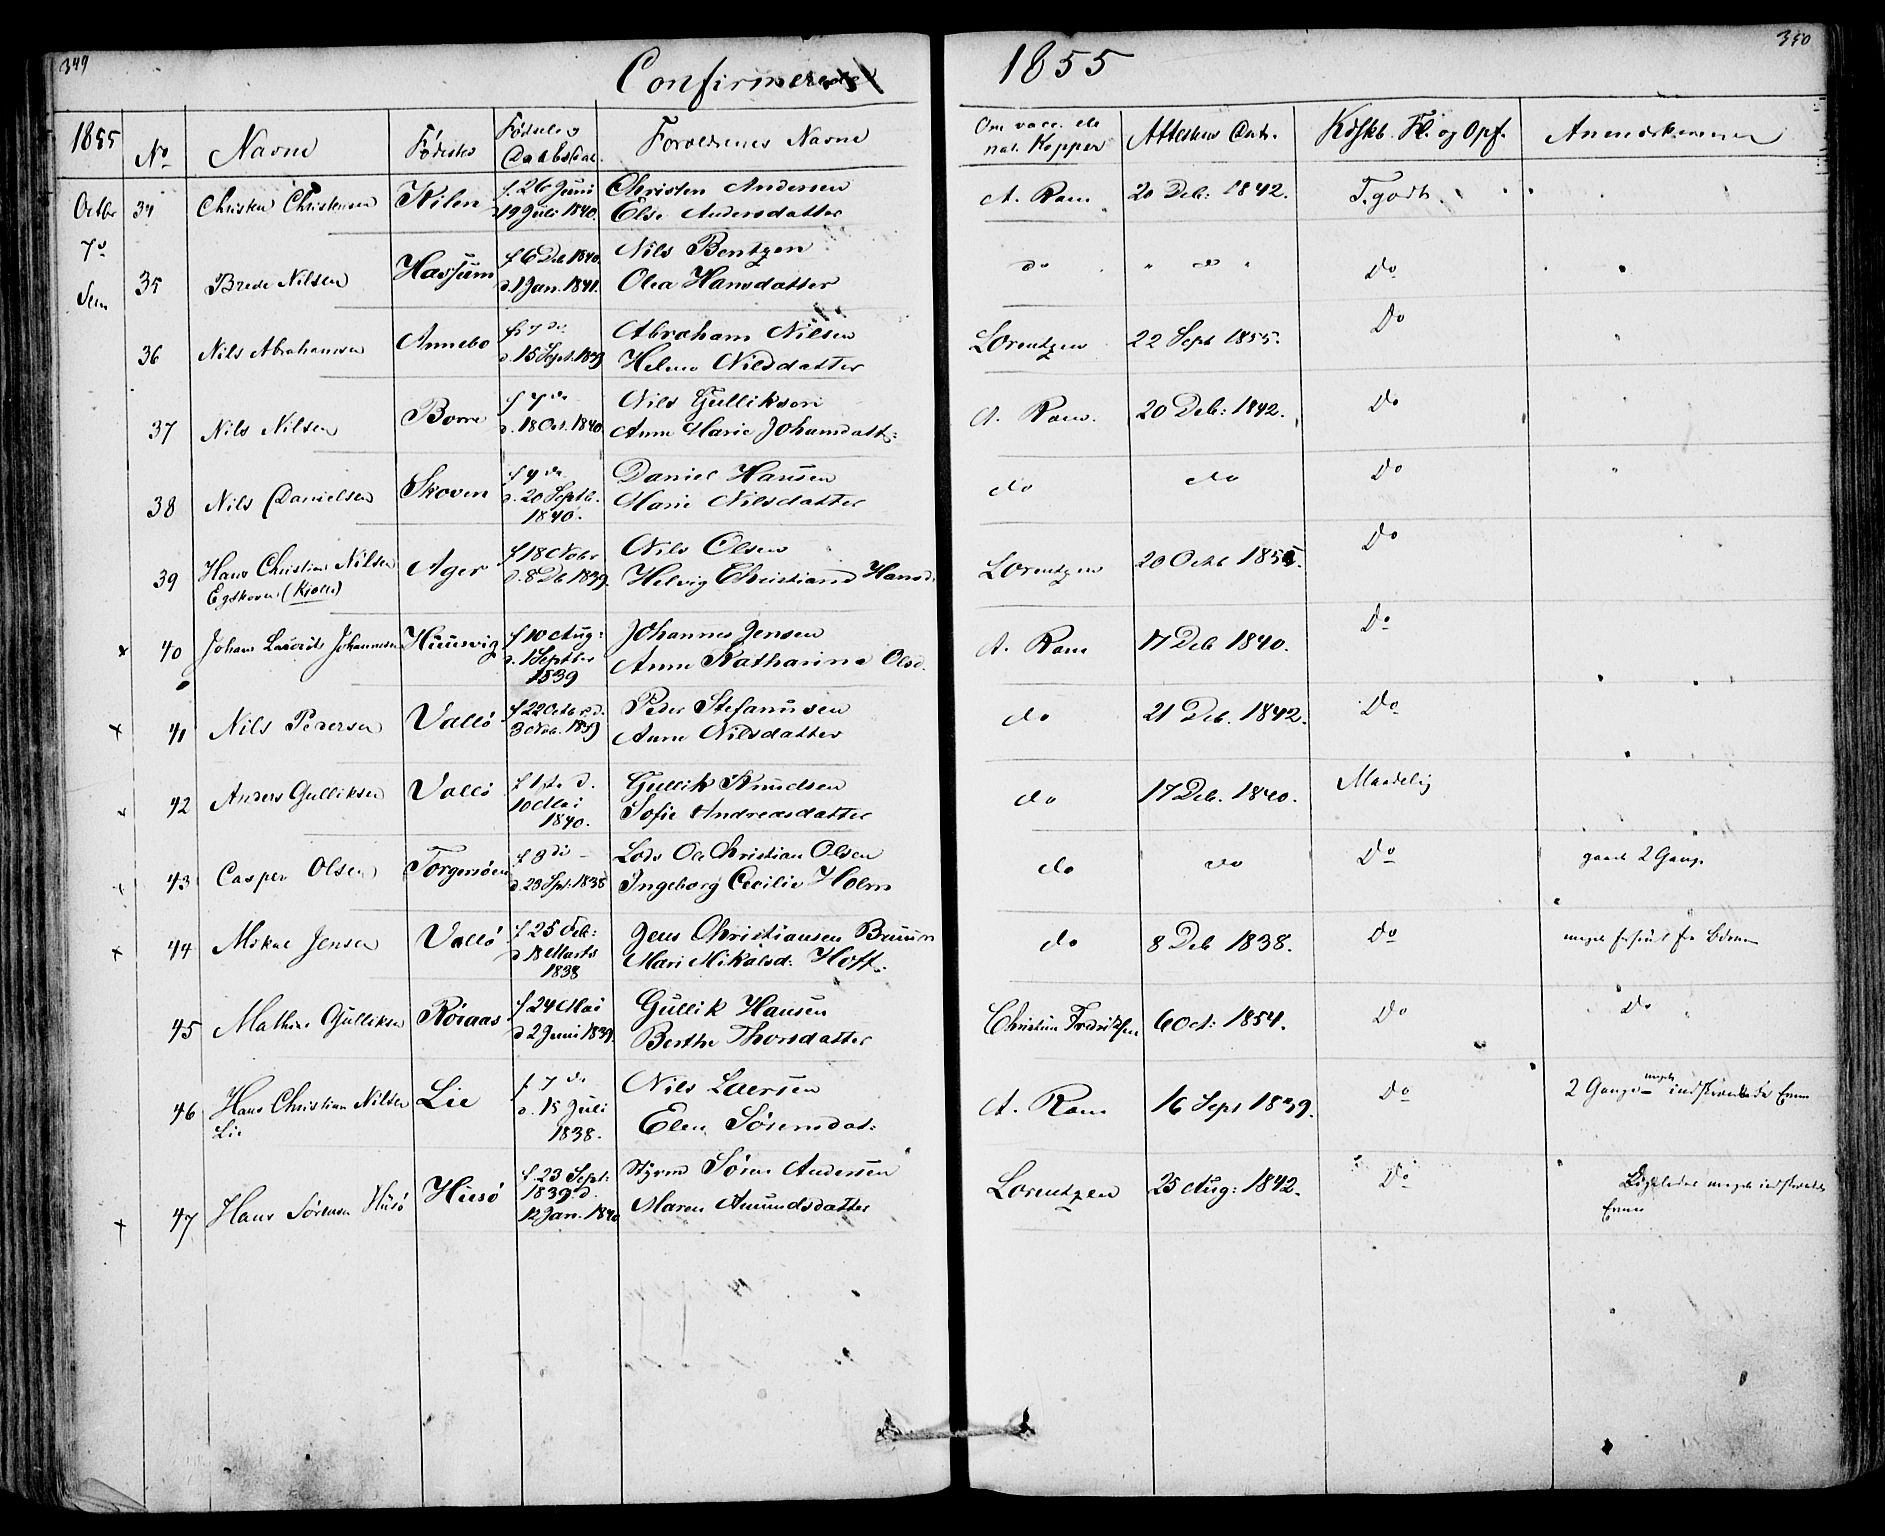 349
Confirmerede
1855
350
1855 No Navne Fødested Fødsels og Daabsdat. Forældrenes Navne
Om vacc. ell. nat. Kopper Attestens Dat. Kdskb. Fl. og Opf. Anmærkninger
Octbr 7de Sem
34 Christen Christensen Kilen f. 26 Juni Christen Andersen A. Ram 20 Deb: 1842. T. godt.
d. 19 Juli 1840. Else Andersdatter
35 Brede Nilsen Hassum f 6 Deb 1840. Nils Bentzen do " do " Do
d. 1 Jan. 1841. Olea Hansdatter
36 Nils Abrahamsen Annebo f. 7 de Abraham Nilsen Lorentzen 22 Sept 1855. Do
d. 15 Sept. 1839 Helene Nilsdatter
37 Nils Nilsen Borre f 7 de Nils Gulliksen A. Ram. 20 Deb: 1842. Do
d. 18 Oct. 1840 Anne Marie Johansdatt:
38 Nils Danielsen Skoven f 9 de Daniel Hansen do do Do
d. 20 Septb. 1840. Marie Nilsdatter
39 Hans Christian Nilsen Ager f 18 Nobr Nils Olsen Lorentzen 20 Octb 1855. Do
Egskoven (Kjølle) d. 8 Db 1839. Helvig Christiane Hansd.
x 40 Johan Laurits Johannesen Huusvig f 10 Aug: Johannes Jensen A. Ram 17 Deb 1840. Do
d. 1 Septber 1839 Anne Katharina Olsd.
x 41 Nils Pedersen Vallö f 22 Octobr d. Peder Stefanusen do 21 Deb. 1842. Do
3 Nov. 1839 Anne Nilsdatter
42 Anders Gulliksen Vallö f 1ste d. Gullik Knudsen do 17 Deb. 1840. Maadelig
10 Mai 1840. Sofie Andreasdatter
43 Casper Olsen Torgersöen f 3 di Lods Ole Christian Olsen do do Do gaaet 2 Gange
d. 23 Spt. 1838 Ingeborg Cecilie Holm
x 44 Mikal Jensen Vallö f. 25 Feb: Jens Christiansen Bruun do 8 Deb 1838. Do meget forsømt fra Børnene
d 18 Marts 1838 Mari Mikalsd. Hoff.
45 Mathias Gulliksen Röraas f. 24 Mai Gullik Hansen Christian Fredriksen 6 Oct: 1854. Do Do
d 2 Juni 1839. Berthe Thorsdatter
46 Hans Christian Nilsen Lie f. 7 de Nils Laersen A. Ram 16 Sept 1839. Do 2 Gange – meget indskrænkede Evner
Lie d. 15 Juli 1838. Elen Sörensdat:
x 47 Hans Sörensen Husö Husö f. 23 Sept: Styrm Sören Andersen Lorentzen 25 Aug: 1842. Do meget indskrænkede Evner
1839 d. 12 Jan. 1840 Maren Amundsdatter